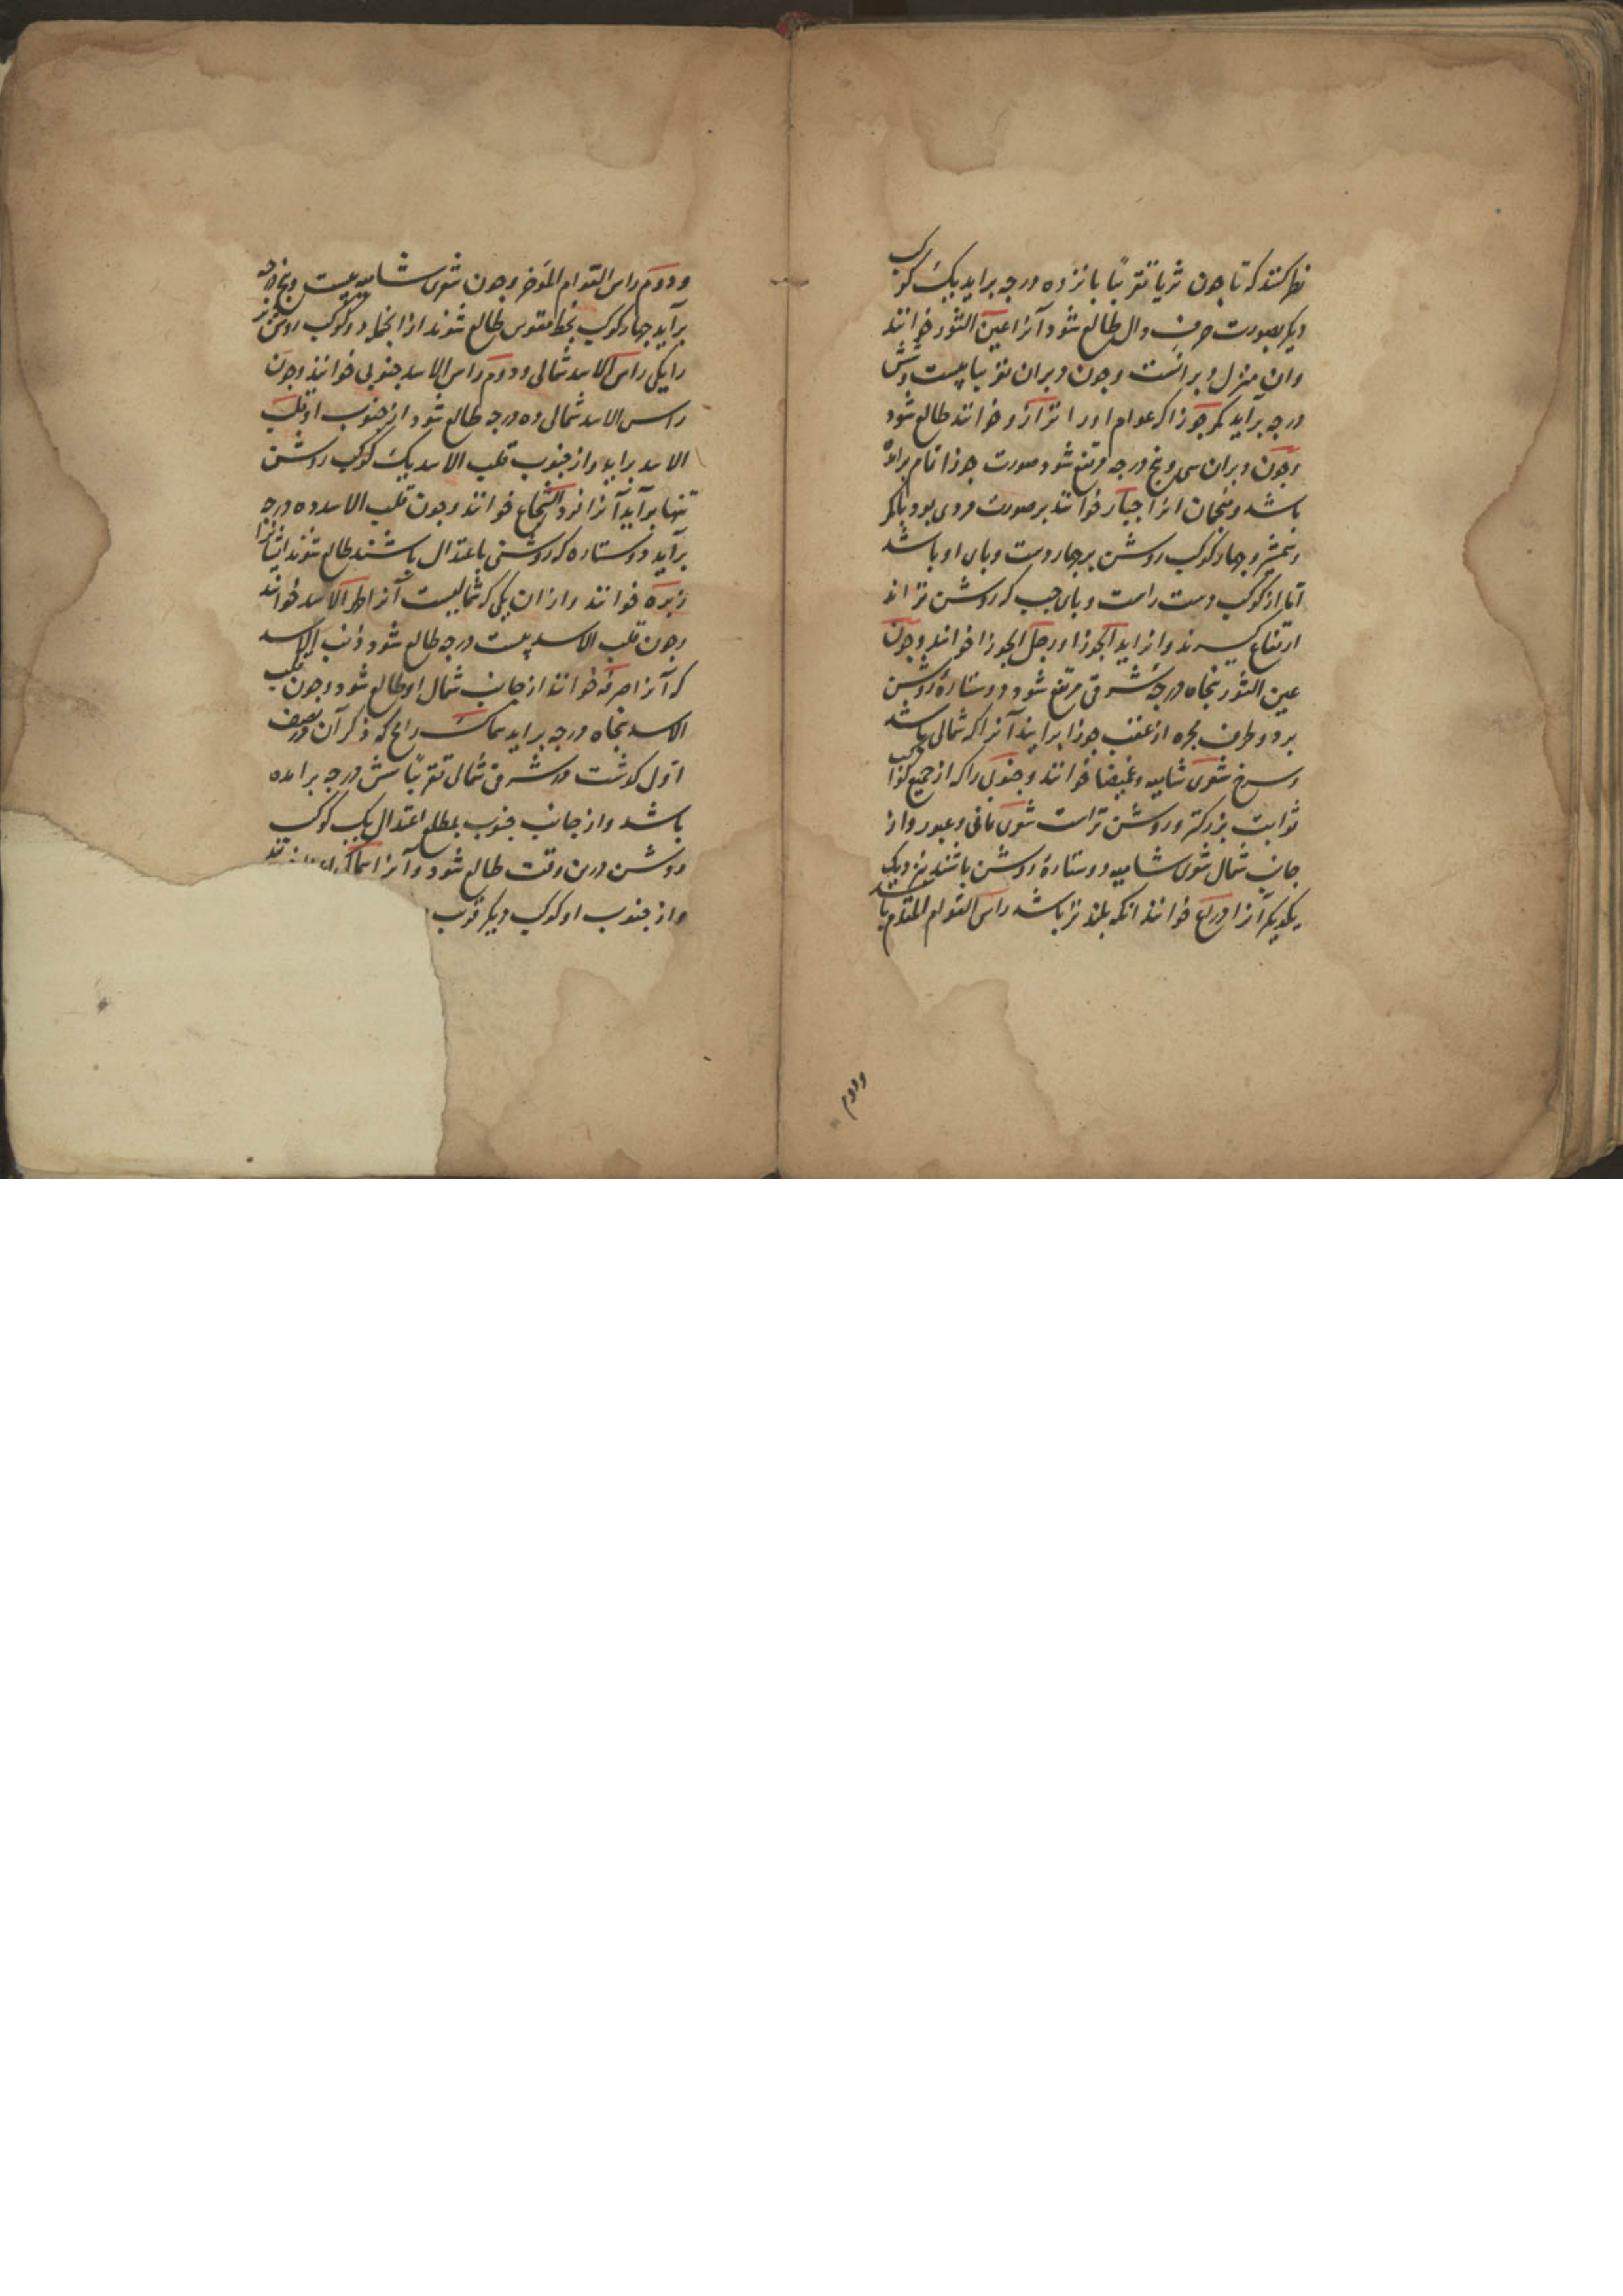 نظر کنند که تا چون ثریا تقریباً پانزده درجه براید یک کوکب
دیگر بصورت حرف دال طالع شود آنرا عین الثور خوانند
وان منزل دبرانست وچون دبران تقریبا بیست وشش
درجه برآید کمر جوزا که عوام اورا ترازو خوانند طالع شود
وچون دبران سی وپنج درجه مرتفع شود صورت جوزا تمام برامده
باشد ومنجمان انرا جبار خوانند بر صورت مردی بود باکمر
وشمشیر وچهار کوکب روشن بر چهار دست وپای او باشد
اما از کوکب دست راست وپای چپ که روشن تراند
ارتفاع کیرند وانرا ید الجوزا ورجل الجوزا خوانند وچون
عین الثور پنجاه درجه شرقی مرتفع شود دو ستارهٔ روشن
بر دو طرف مجره از عقب جوزا برایند آنرا که شمالی باشد
وسرخ شعری شامیه وغمیضا خوانند وجنوبی را که از جمیع کواکب
ثوابت بزرکتر وروشن تراست شعری یمانی وعبور واز
جانب شمال شعری شامیه دو ستارهٔ روشن باشند نزدیک
یکدیکر آنرا ذراع خوانند انکه بلند تر باشد راس التوام المقدم باشد
ودوم
ودوم راس التوام الموخر وچون شعری شامیه بیست وپنج درجه
برآید چهار کوکب بخط مقوس طالع شوند از انجمله دو کوکب روشن تر
را یکی راس الاسد شمالی ودوم راس الاسد جنوبی خوانند وچون
راس الاسد شمالی ده درجه طالع شود از جنوب او قلب
الاسد براید واز جنوب قلب الاسد یک کوکب روشن
تنها برآید آنرا فرد الشجاع خوانند وچون قلب الاسد ده درجه
برآید دو ستاره که روشنی باعتدال باشند طالع شوند ایشانرا
زبره خوانند وازان یکی که شمالیست آنرا ظهر الاسد خوانند
وچون قلب الاسد بیست درجه طالع شود ذنب الاسد
که آنرا صرفه خوانند از جانب شمال او طالع شود وچون قلب
الاسد پنجاه درجه براید سماک رامح که ذکر آن در نصف
اول کذشت در شرقی شمالی تقریباً شش درجه برامده
باشد واز جانب جنوب بمطلع اعتدال یک کوکب
روشن درین وقت طالع شود وآنرا سماک
واز جنوب او کوکب دیکر قریب